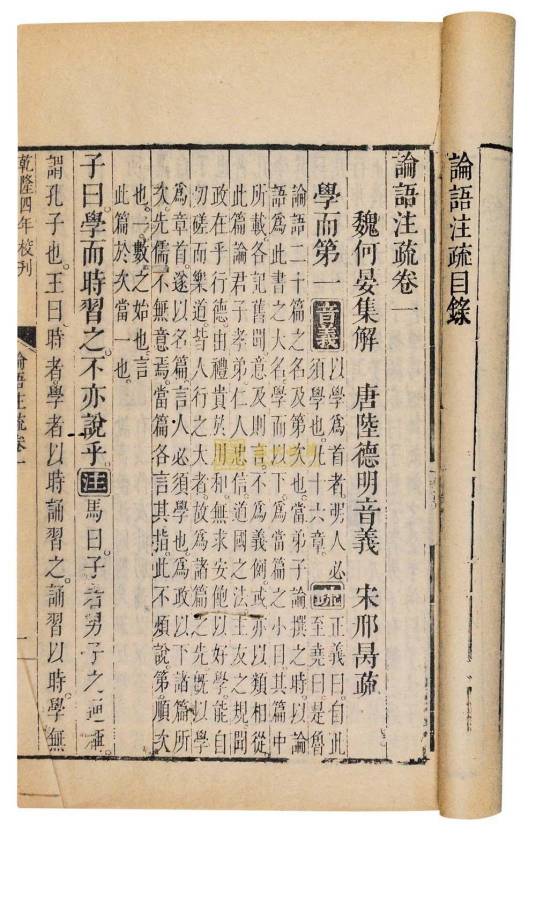 論語注疏目錄
論語注疏卷一
魏何晏集解　唐陸德明音義　宋邢昺疏
學而第一
音義
以學爲首者明人必
須學也凡十六章
疏
正義曰自此
至堯曰是魯
論語二十篇之名及第次也當弟子論撰之時以論
語爲此書之大名學而以下爲當篇之小目其篇中
所載各記舊聞意及則言不爲義例或亦以類相從
此篇論君子孝弟仁人忠信道國之法主友之規聞
政在乎行德由禮貴於用和無求安飽以好學能自
切磋而樂道皆人行之大者故爲諸篇之先旣以學
爲章首遂以名篇言人必須學也爲政以下諸篇所
次先儒不無意焉當篇各言其指此不煩說第順次
也一數之始也言
此篇於次當一也
子曰。學而時習之。不亦說乎。
注
馬曰。子者。男子之通稱。
謂孔子也。王曰。時者。學者以時誦習之。誦習以時。學無
乾隆四年校刊
論語注疏卷一
一